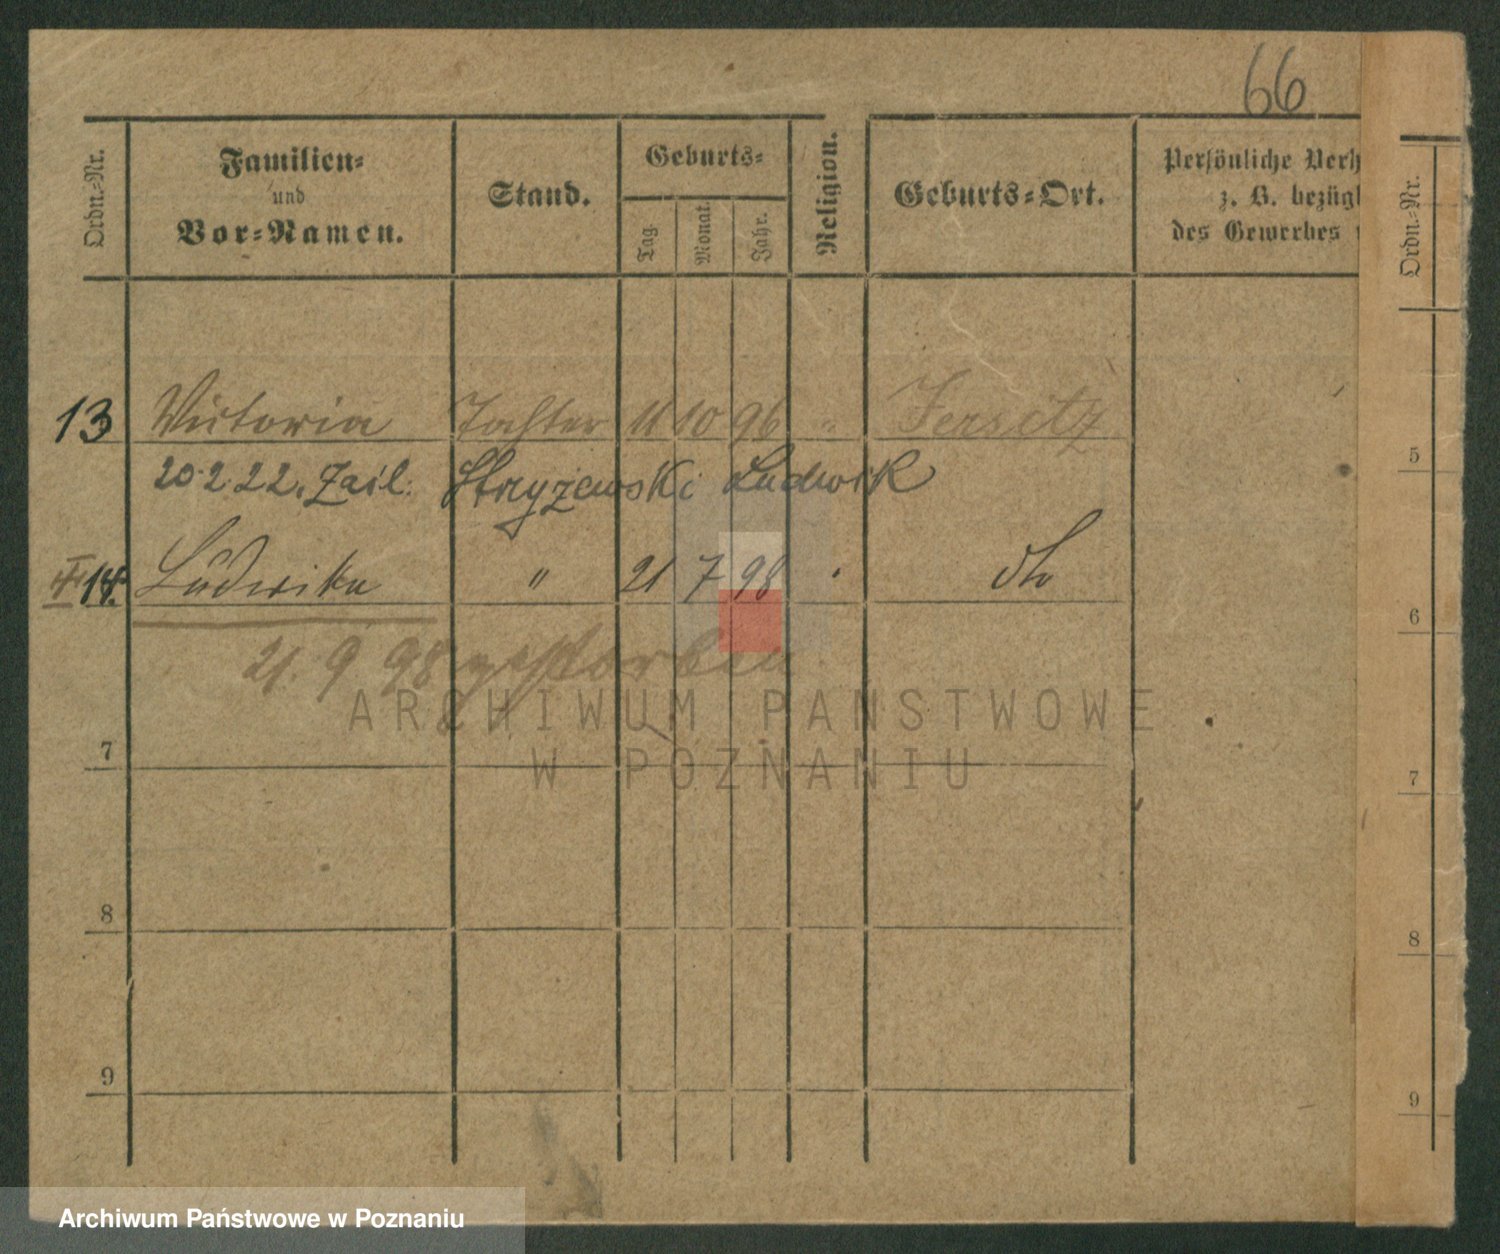 66
Ordn.-Nr.
Familien-
und
Vor-Namen.
Stand.
Geburts-
Tag.
Monat.
Jahr.
Religion.
Geburts-Ort.
Persönliche Verh
z. B. bezügl
des Gewerbes
Ordn.-Nr.
13 Victoria Tochter 11 10 96 " Jersitz
20.2.22. Stryżewski Ludwik
5
14. Ludwika " 21 7 98 " dto
21. 9 98 gestorben
6
ARCHIWUM PAŃSTWOWE
W POZNANIU
7
7
8
8
9
9
Archiwum Państwowe w Poznaniu